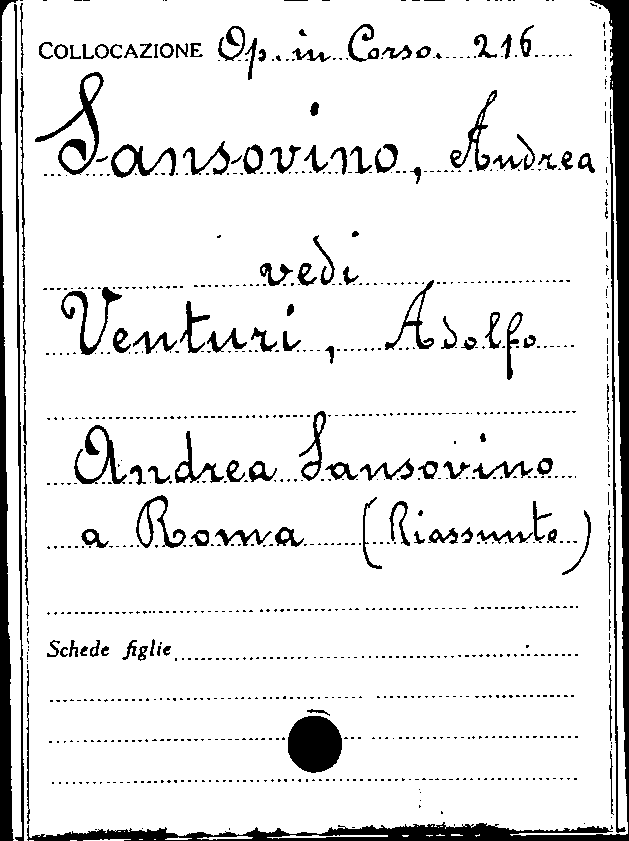 COLLOCAZIONE Op. in Corso. 216
Sansovino, Andrea
vedi
Venturi, Adolfo
Andrea Sansovino
a Roma (Riassunto)
Schede figlie